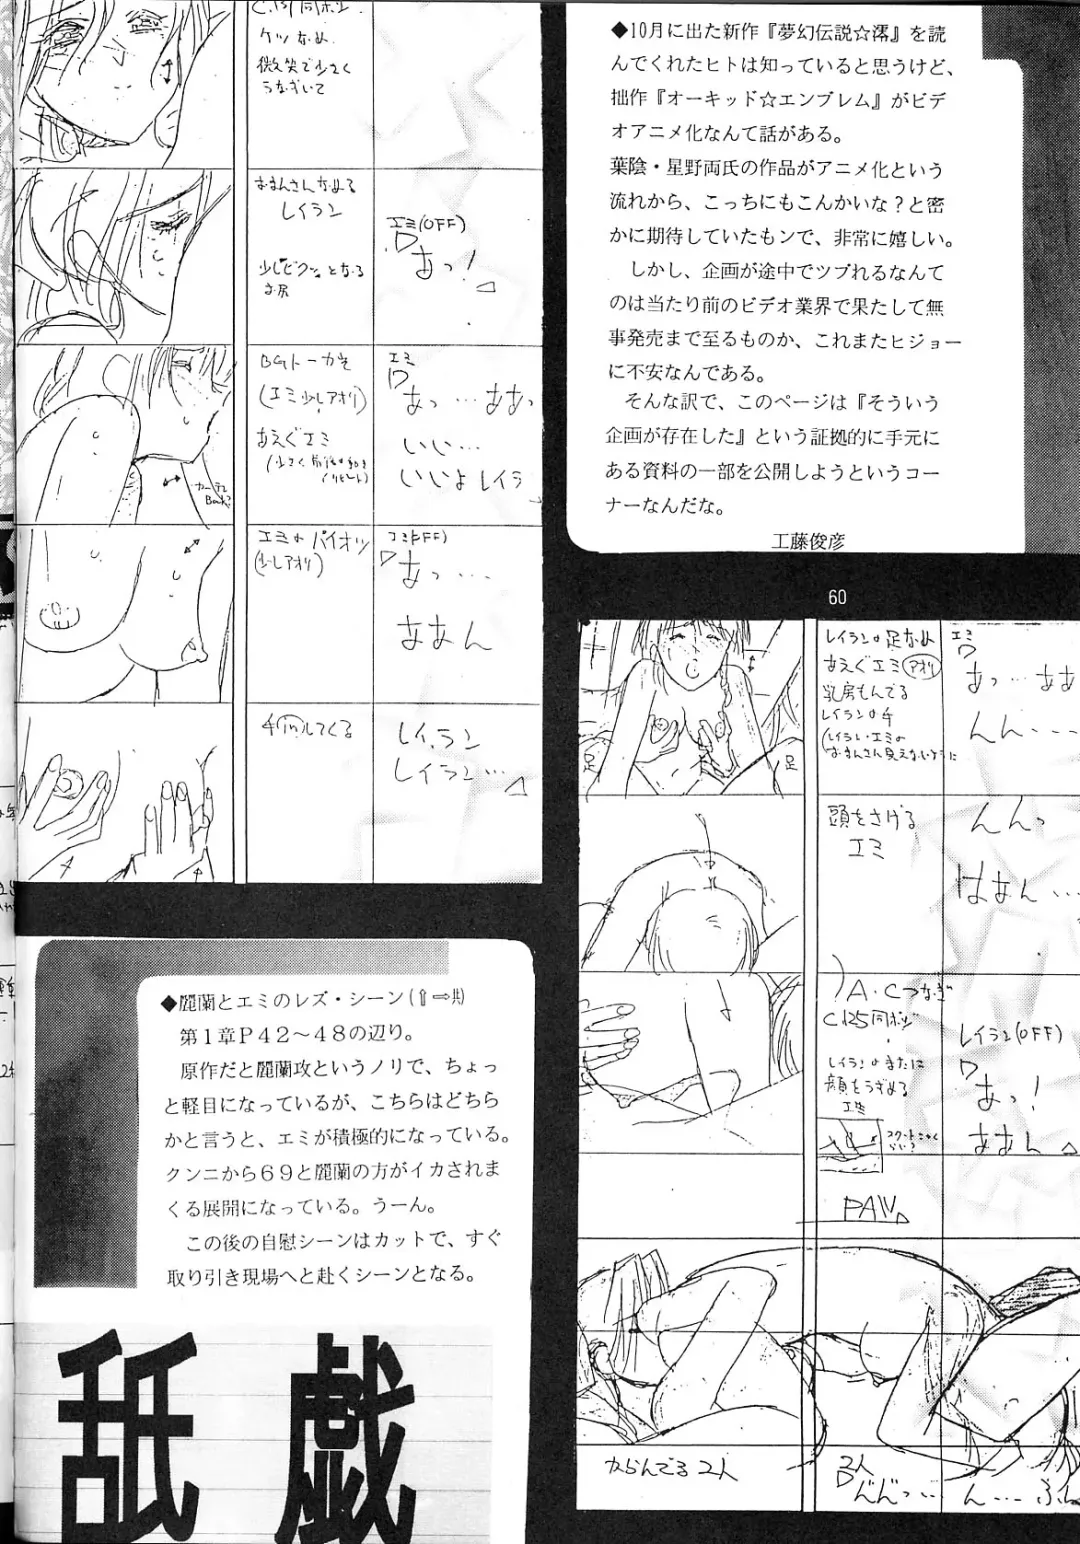 ◆10月に出た新作『夢幻伝説☆澪』を読
んでくれたヒトは知っていると思うけど、
拙作『オーキッド☆エンブレム』がビデ
オアニメ化なんて話がある。
葉陰・星野両氏の作品がアニメ化という
流れから、こっちにもこんかいな？と密
かに期待していたもンで、非常に嬉しい。
しかし、企画が途中でツブれるなんて
のは当たり前のビデオ業界で果たして無
事発売まで至るものか、これまたヒジョー
に不安なんである。
そんな訳で、このページは『そういう
企画が存在した』という証拠的に手元に
ある資料の一部を公開しようというコー
ナーなんだな。
工藤俊彦
60
微笑で少さく
うなずいて
おまんさんなめる
レイラン
少しビクッとなる
お尻
エミ(OFF)
あっ！
(エミ少しアオリ)
あえぐエミ
エミ
あっ…ああっ
いい…
いいよレイラ
エミのパイオツ
(少しアオリ)
エミ(OFF)
あっ…
ああん
手inしてくる
レイラン
レイラン…
レイランの足なめ
あえぐエミ(アオリ)
乳房もんでる
レイランの手
エミ
あっ…ああ
んん…
足
足
頭をさげる
エミ
んんっ
はあん…
A・Cつなぎ
C125同ポジ
レイランのまたに
顔をうずめる
エミ
レイラン(OFF)
あっ！
ああん
PAN
からんでる2人
2人
んんっ…ん…ふ
◆麗蘭とエミのレズ・シーン(⇧⇨共)
第１章Ｐ４２～４８の辺り。
原作だと麗蘭攻というノリで、ちょっ
と軽目になっているが、こちらはどちら
かと言うと、エミが積極的になっている。
クンニから６９と麗蘭の方がイカされま
くる展開になっている。うーん。
この後の自慰シーンはカットで、すぐ
取り引き現場へと赴くシーンとなる。
舐戯